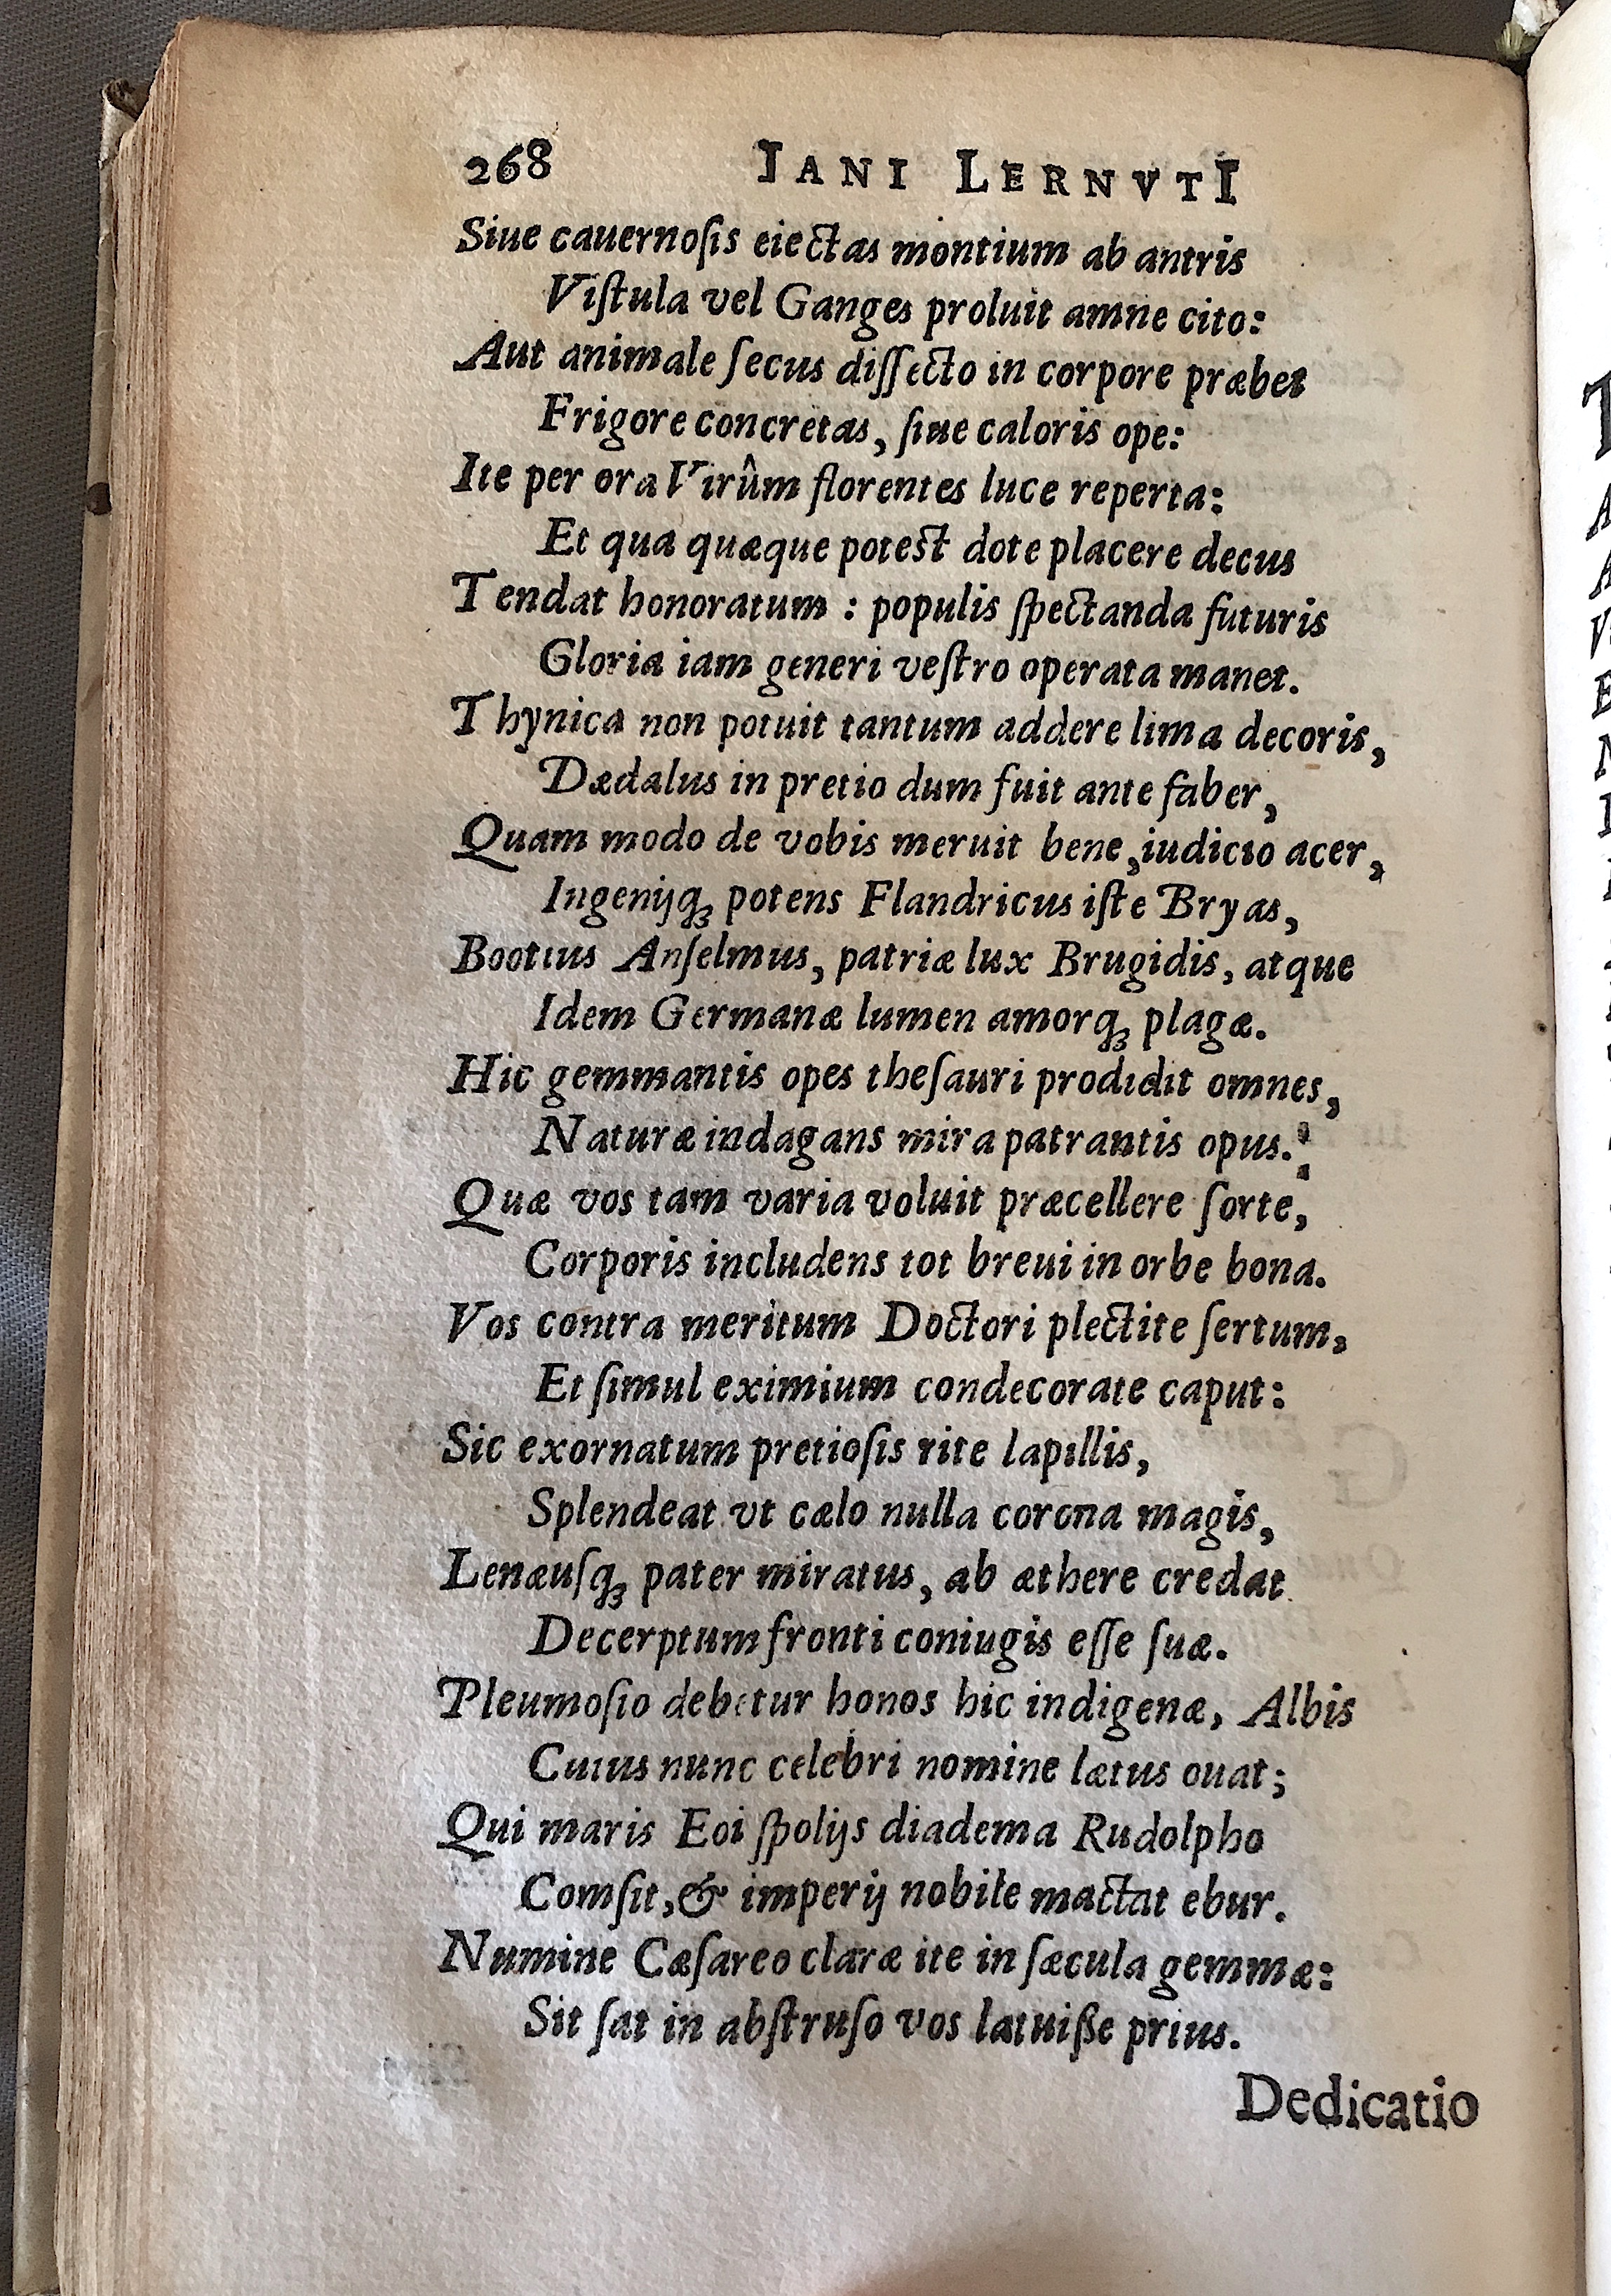 268 IANI LERNVTI
Siue cauernoſis eiectas montium ab antris
Viſtula vel Ganges proluit amne cito:
Aut animale ſecus diſſecto in corpore præbet
Frigore concretas, ſiue caloris ope:
Ite per ora Virûm florentes luce reperta:
Et qua quæque potest dote placere decus
Tendat honoratum : populis ſpectanda futuris
Gloria iam generi veſtro operata manet.
Thynica non potuit tantum addere lima decoris,
Dædalus in pretio dum fuit ante faber,
Quam modo de vobis meruit bene, iudicio acer,
Ingenijq́ꝫ potens Flandricus iſte Bryas,
Bootius Anſelmus, patriæ lux Brugidis, atque
Idem Germanæ lumen amorq́ꝫ plagæ.
Hic gemmantis opes theſauri prodidit omnes,
Naturæ indagans mira patrantis opus.
Quæ vos tam varia voluit præcellere ſorte,
Corporis includens tot breui in orbe bona.
Vos contra meritum Doctori plectite ſertum,
Et ſimul eximium condecorate caput:
Sic exornatum pretioſis rite lapillis,
Splendeat vt cælo nulla corona magis,
Lenæuſq́ꝫ pater miratus, ab æthere credat
Decerptum fronti coniugis eſſe ſuæ.
Pleumoſio debetur honos hic indigenæ, Albis
Cuius nunc celebri nomine lætus ouat;
Qui maris Eoi ſpolijs diadema Rudolpho
Comſit, & imperij nobile mactat ebur.
Numine Cæſareo claræ ite in ſæcula gemmæ:
Sit ſat in abſtruſo vos latuiße prius.
Dedicatio